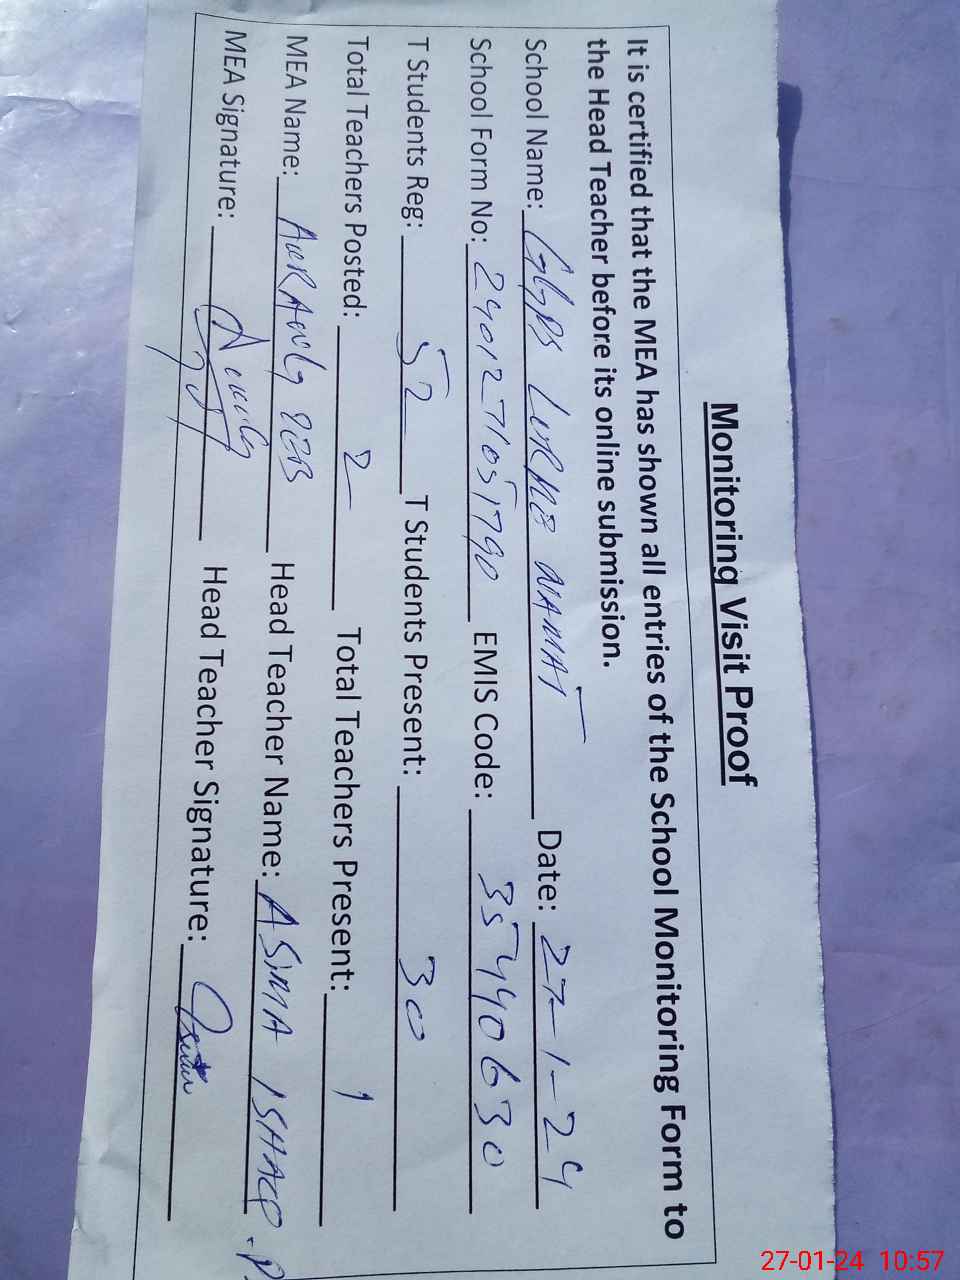 Monitoring Visit Proof
It is certified that the MEA has shown all entries of the School Monitoring Form to
the Head Teacher before its online submission.
School Name: GGPS Date: 27-1-24
School Form No: 2401271051790 EMIS Code: 35440630
T Students Reg: 52 T Students Present: 30
Total Teachers Posted: 2 Total Teachers Present: 1
MEA Name: AURANG ZEB Head Teacher Name: ASIMA ISHAQ
MEA Signature: Head Teacher Signature:
27-01-24 10:57